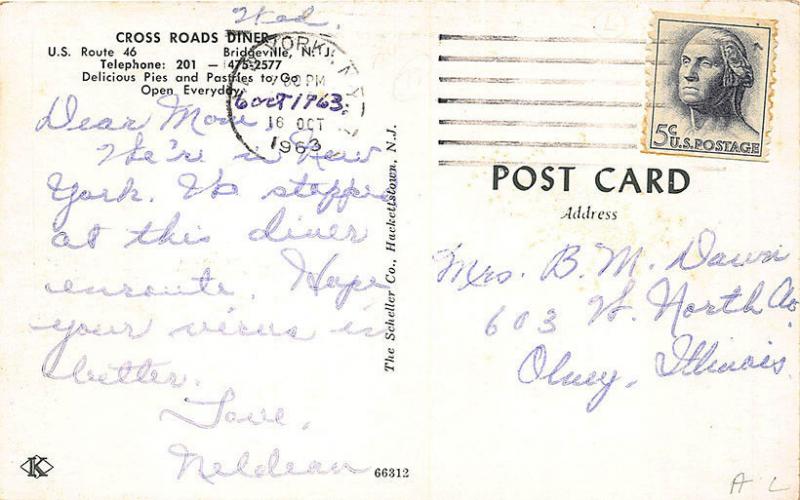 Wed.
CROSS ROADS DINER
U.S. Route 46 Bridgeville, N.J.
Telephone: 201 — 475-2577
Delicious Pies and Pastries to Go
Open Everyday
YORK, N.Y.
PM
6 OCT 1963
16 OCT
1963
Dear Mom,
We're in New
York. We stopped
at this diner
enroute. Hope
your virus is
better.
Love,
Neldean
The Scheller Co., Hackettstown, N.J.
K
66312
5¢ U.S. POSTAGE
POST CARD
Address
Mrs. B. M. Dawn
603 W. North Av
Olney, Illinois.
A L